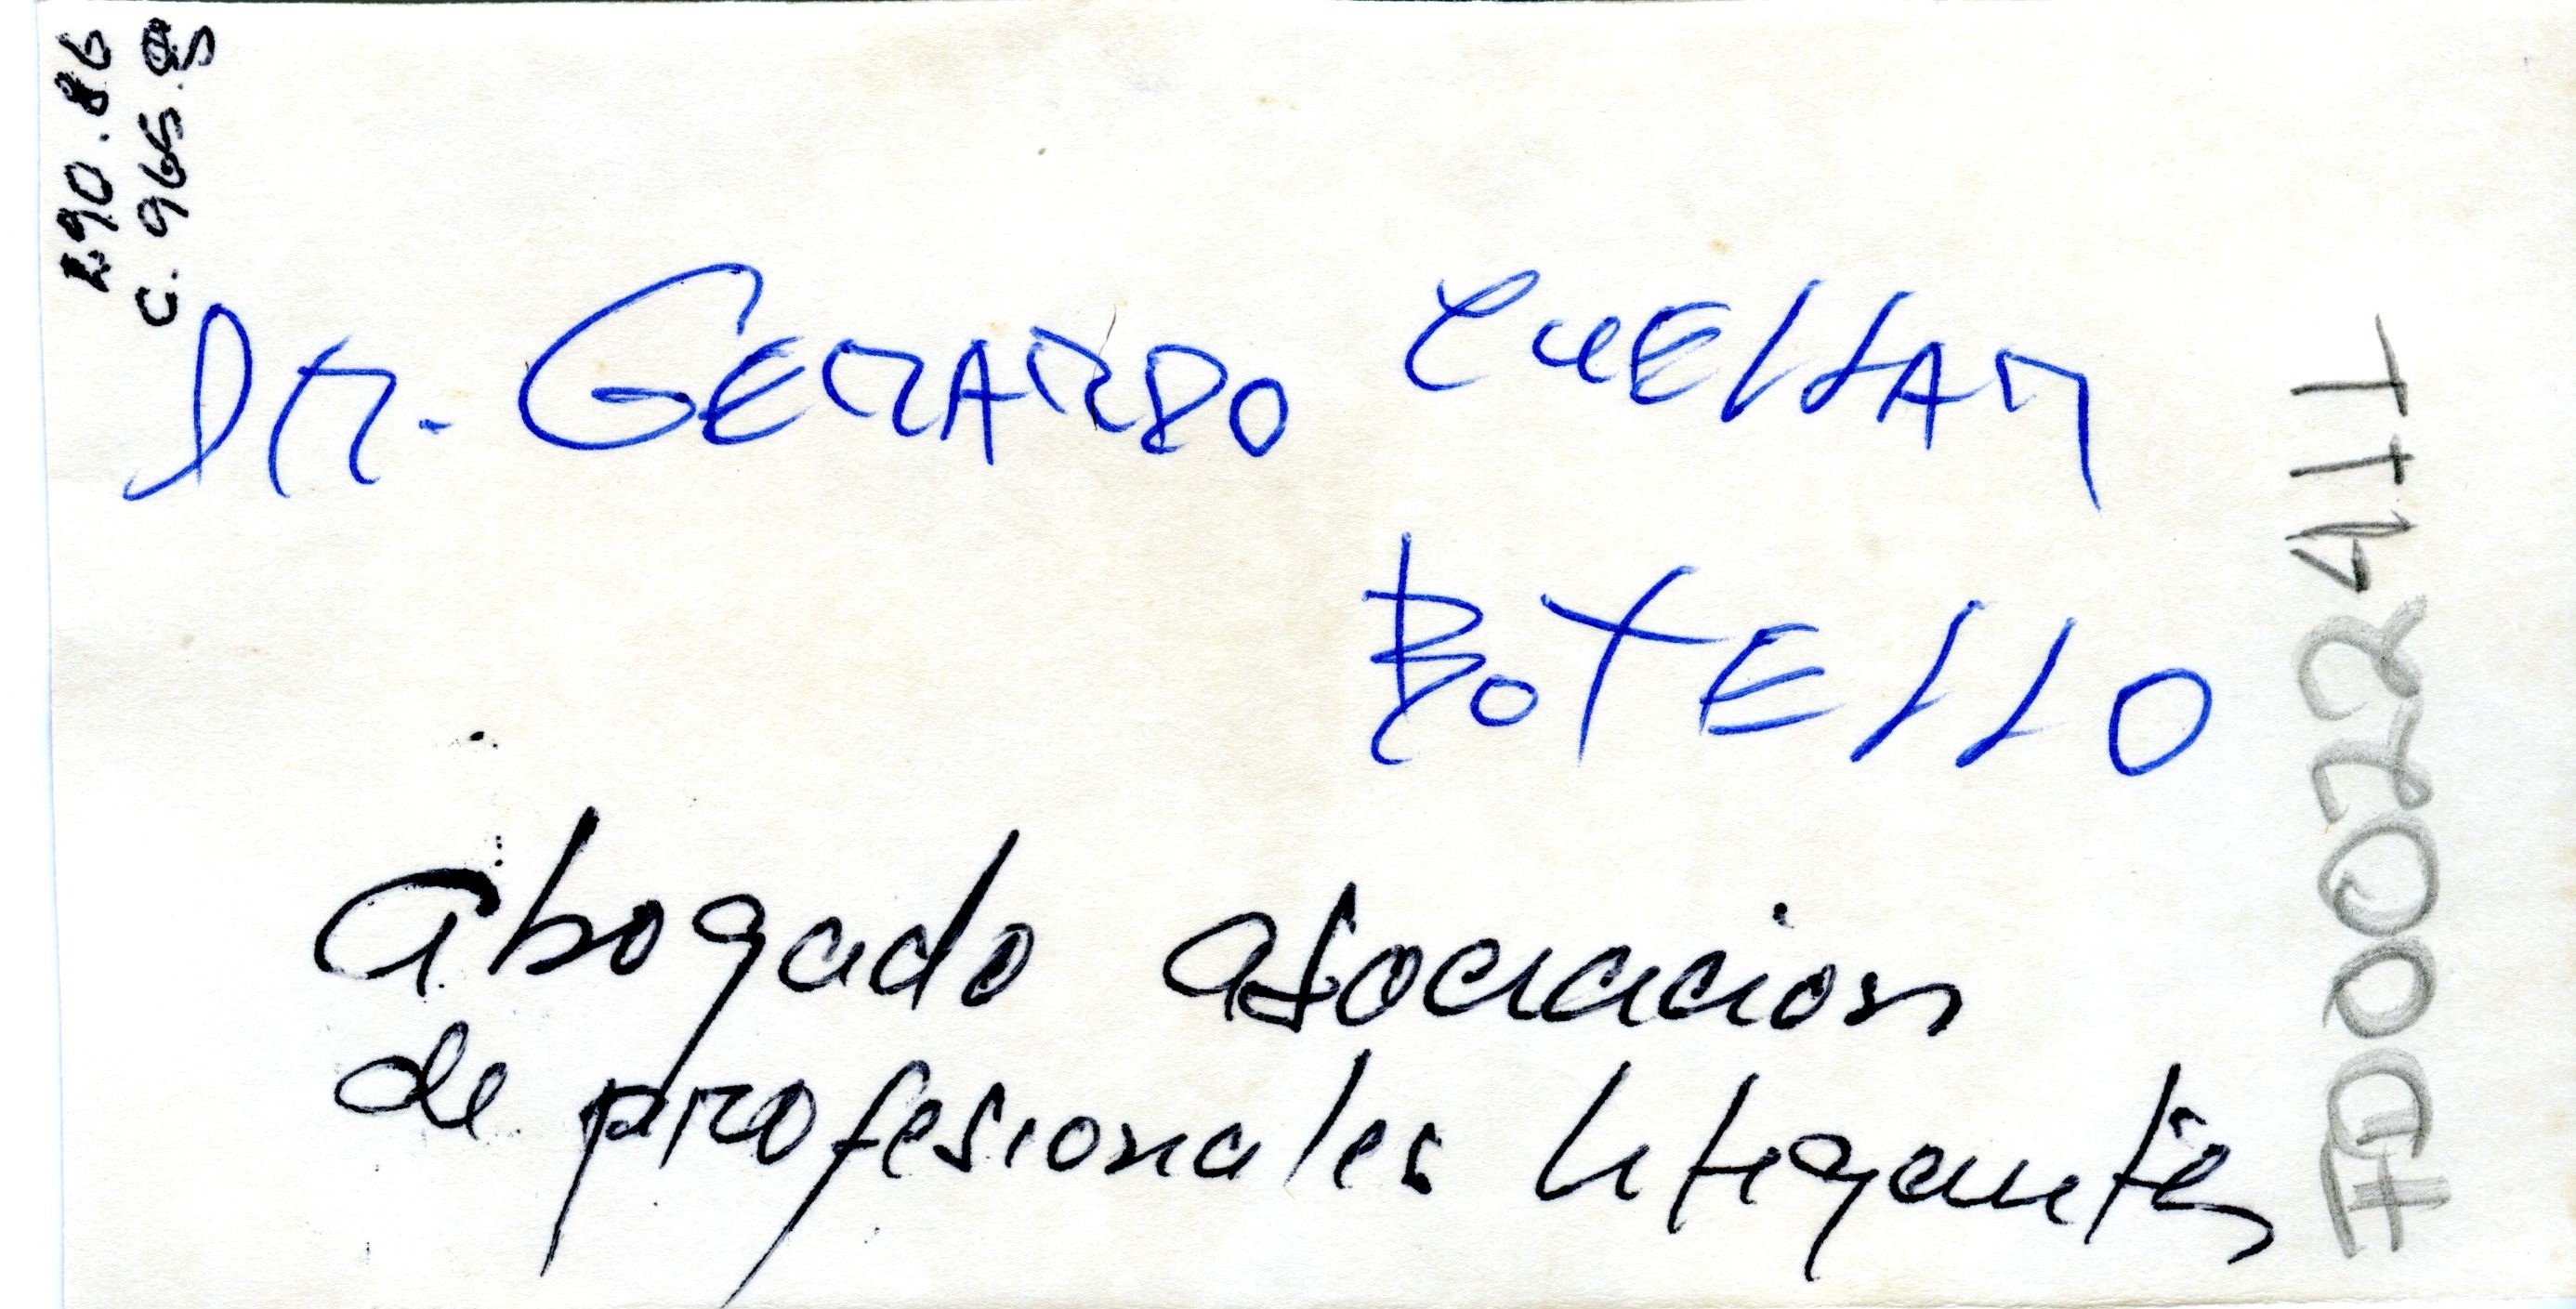 C. 965.
DR. GERARDO CUELLAR
BOTELLO
abogado asociacion
de profesionales litigantes
FD0022411